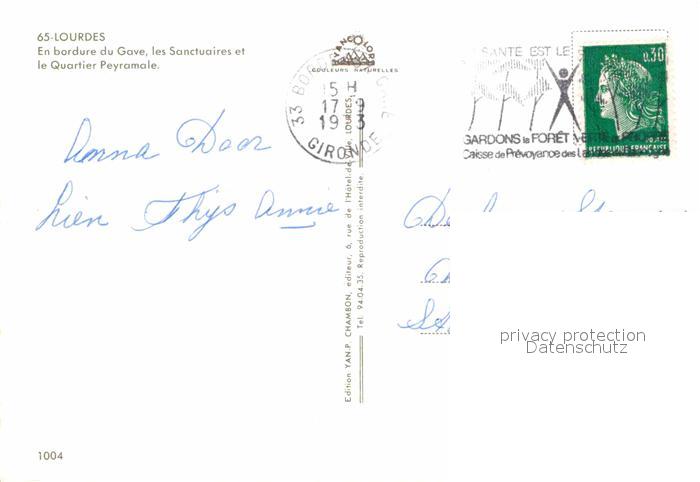 65-LOURDES
En bordure du Gave, les Sanctuaires et
le Quartier Peyramale.
YANCOLOR
COULEURS NATURELLES
33 BORD
15 H
17 -9
19 3
GIRONDE
SANTÉ EST LE
GARDONS la FORÊT VERTE
Caisse de Prévoyance des
0,30
RÉPUBLIQUE FRANÇAISE
Anna Door
Lien Thys Annie
Edition YAN.P. CHAMBON, editeur, 6, rue de l'Hôtel-de-Ville, LOURDES.
Tel. 94.04.35. Reproduction interdite.
privacy protection
Datenschutz
1004